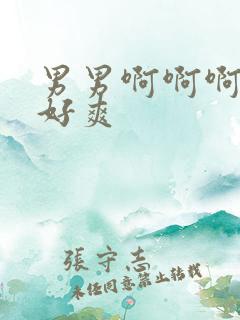 男男啊啊啊
好爽
張守志
未经同意禁止转载